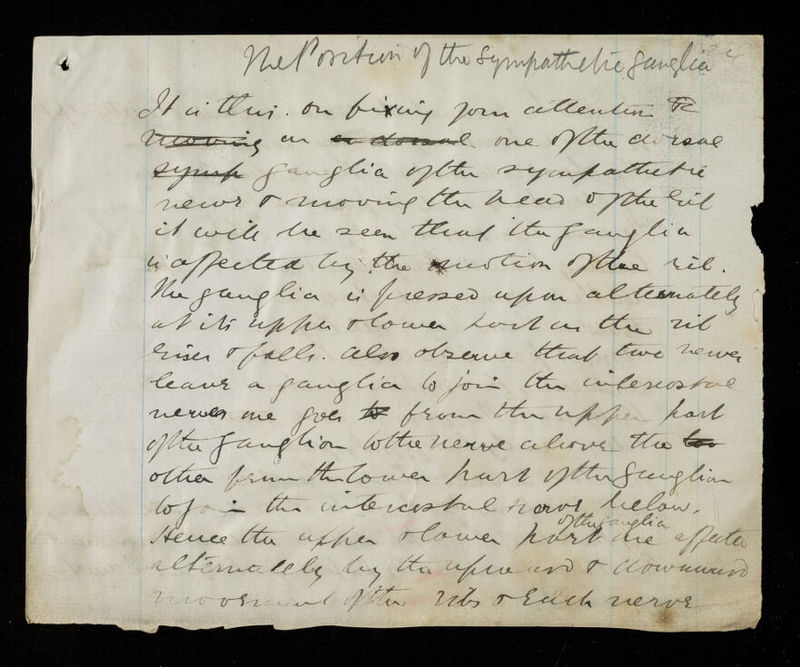 The Position of the Sympathetic ganglia
It is this. On fixing your attention to
moving on a dorsal one of the dorsal
symp ganglia of the sympathetic
nerve & moving the head of the rib
it will be seen that the ganglia
is affected by the motion of the rib.
The ganglia is pressed upon alternately
at its upper & lower part as the rib
rises & falls. Also observe that two nerves
leave a ganglia to join the intercostal
nerves one goes to from the upper part
of the ganglion to the nerve above the
other from the lower part of the ganglion
to join the intercostal nerve below.
Hence the upper & lower part of the ganglia are affected
alternately by the upward & downward
movement of the ribs & each nerve